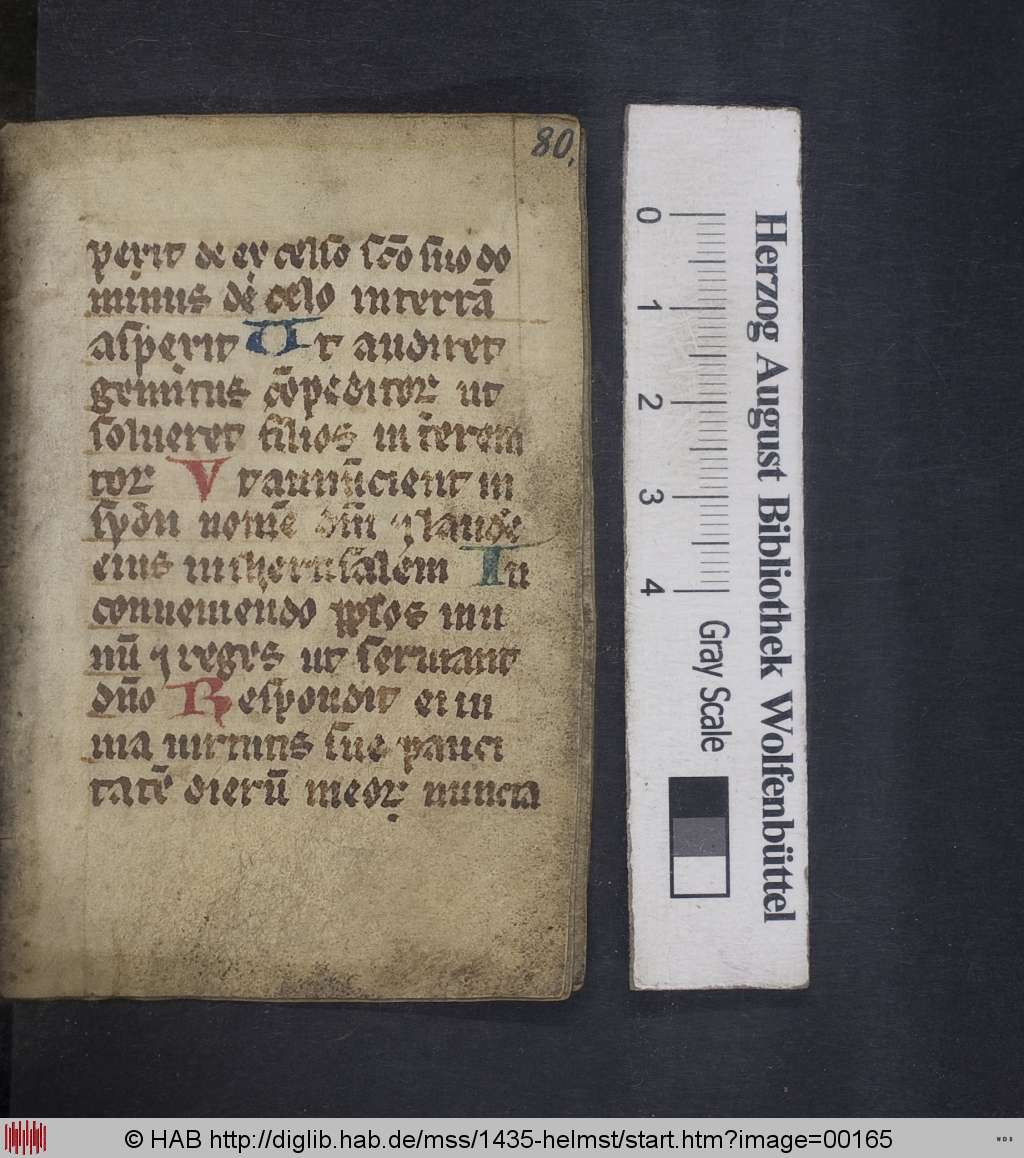 80.
perit de excelso sco̅ suo do
minus de celo in terra̅
asperit Ut audiret
gemitus co̅peditoꝝ ut
solueret filios int̅erem
toꝝ Vt annu̅cient in
syon nom̅e dn̅i ⁊ laude̅
eius in iherusalem In
conueniendo pp̅los in u
nu̅ ⁊ reges ut seruiant
dn̅o Respondit ei in
uia uirtutis sue pauci
tate̅ dieru̅ meoꝝ nuncia
0 1 2 3 4
Gray Scale
Herzog August Bibliothek Wolfenbüttel
© HAB http://diglib.hab.de/mss/1435-helmst/start.htm?image=00165